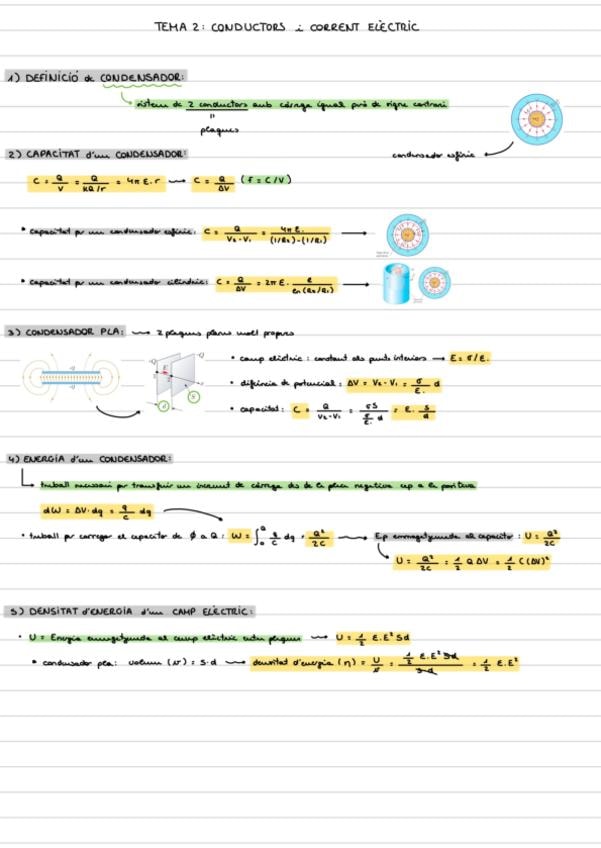 TEMA 2: CONDUCTORS i CORRENT ELÈCTRIC
1) DEFINICIÓ de CONDENSADOR:
sistema de 2 conductors amb càrrega igual però de signe contrari
"
plaques
condensador esfèric
2) CAPACITAT d'un CONDENSADOR:
C = Q/V = Q/(KQ/r) = 4π ε. r → C = Q/ΔV (F = C/V)
• capacitat per un condensador esfèric: C = Q/(V2-V1) = 4π ε./((1/R2)-(1/R1))
• capacitat per un condensador cilíndric: C = Q/ΔV = 2π ε. ℓ/(ln(R2/R1))
3) CONDENSADOR PLA: → 2 plaques planes molt properes
• camp elèctric: constant als punts interiors → E = σ/ε.
• diferència de potencial: ΔV = V2-V1 = σ/ε. d
• capacitat: C = Q/(V2-V1) = σS/(σ/ε. d) = ε. S/d
4) ENERGIA d'un CONDENSADOR:
treball necessari per transferir un increment de càrrega des de la placa negativa cap a la positiva
dW = ΔV·dq = q/C dq
• treball per carregar el capacitor de 0 a Q: W = ∫₀^Q q/C dq = Q²/2C → Ep emmagatzemada al capacitor: U = Q²/2C
U = Q²/2C = 1/2 Q ΔV = 1/2 C(ΔV)²
5) DENSITAT d'ENERGIA d'un CAMP ELÈCTRIC:
• U = Energia emmagatzemada al camp elèctric entre plaques → U = 1/2 ε.E² Sd
• condensador pla: volum (v) = S·d → densitat d'energia (η) = U/v = (1/2 ε.E² Sd)/(S·d) = 1/2 ε.E²